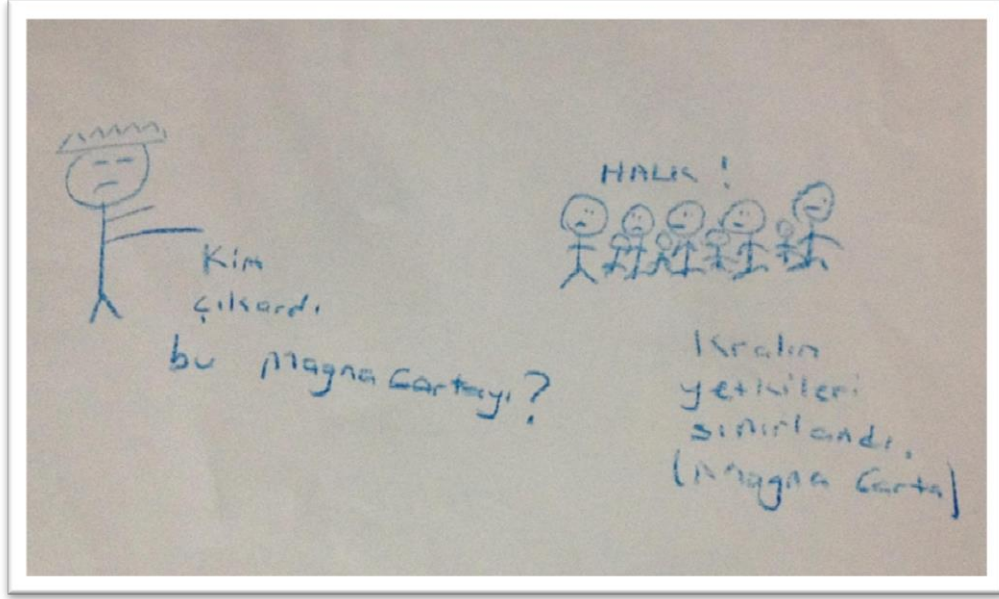 Kim
çıkardı
bu Magna Cartayı?
HALK!
Kralın
yetkileri
sınırlandı.
(Magna Carta)